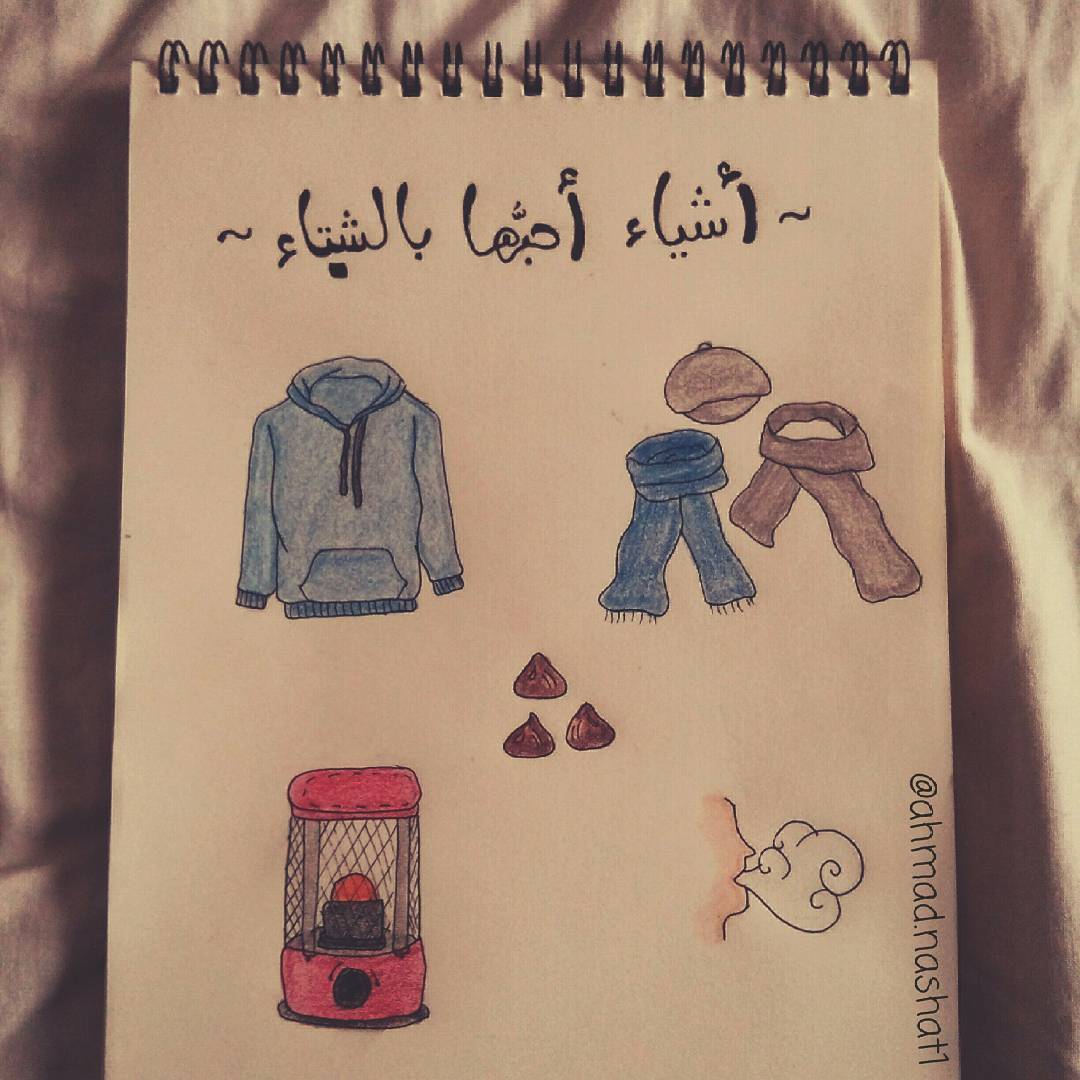 ~ أشياء أحبُّها بالشتاء ~
@ahmad.nashat1